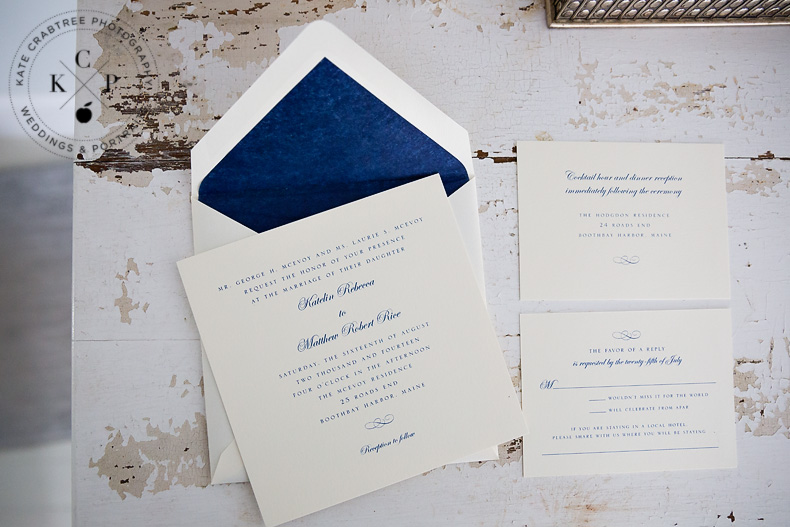 KATE CRABTREE PHOTOGRAPHY
C
K P
WEDDINGS &
MR. GEORGE H. MCEVOY AND MS. LAURIE S. MCEVOY
REQUEST THE HONOR OF YOUR PRESENCE
AT THE MARRIAGE OF THEIR DAUGHTER
Katelin Rebecca
to
Matthew Robert Rice
SATURDAY, THE SIXTEENTH OF AUGUST
TWO THOUSAND AND FOURTEEN
FOUR O'CLOCK IN THE AFTERNOON
THE MCEVOY RESIDENCE
25 ROADS END
BOOTHBAY HARBOR, MAINE
Reception to follow
Cocktail hour and dinner reception
immediately following the ceremony
THE HODGDON RESIDENCE
24 ROADS END
BOOTHBAY HARBOR, MAINE
THE FAVOR OF A REPLY
is requested by the twenty-fifth of July
M
WOULDN'T MISS IT FOR THE WORLD
WILL CELEBRATE FROM AFAR
IF YOU ARE STAYING IN A LOCAL HOTEL,
PLEASE SHARE WITH US WHERE YOU WILL BE STAYING